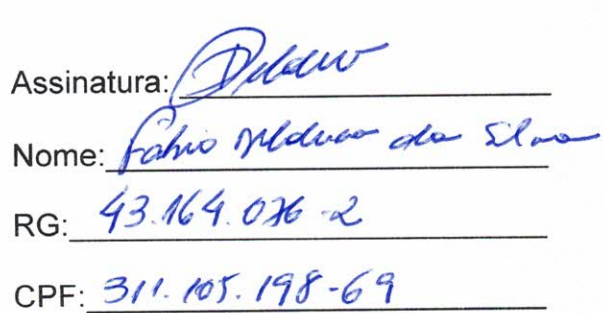 Assinatura:
Nome: Fabio da Silva
RG: 43.164.076-2
CPF: 311.105.198-69